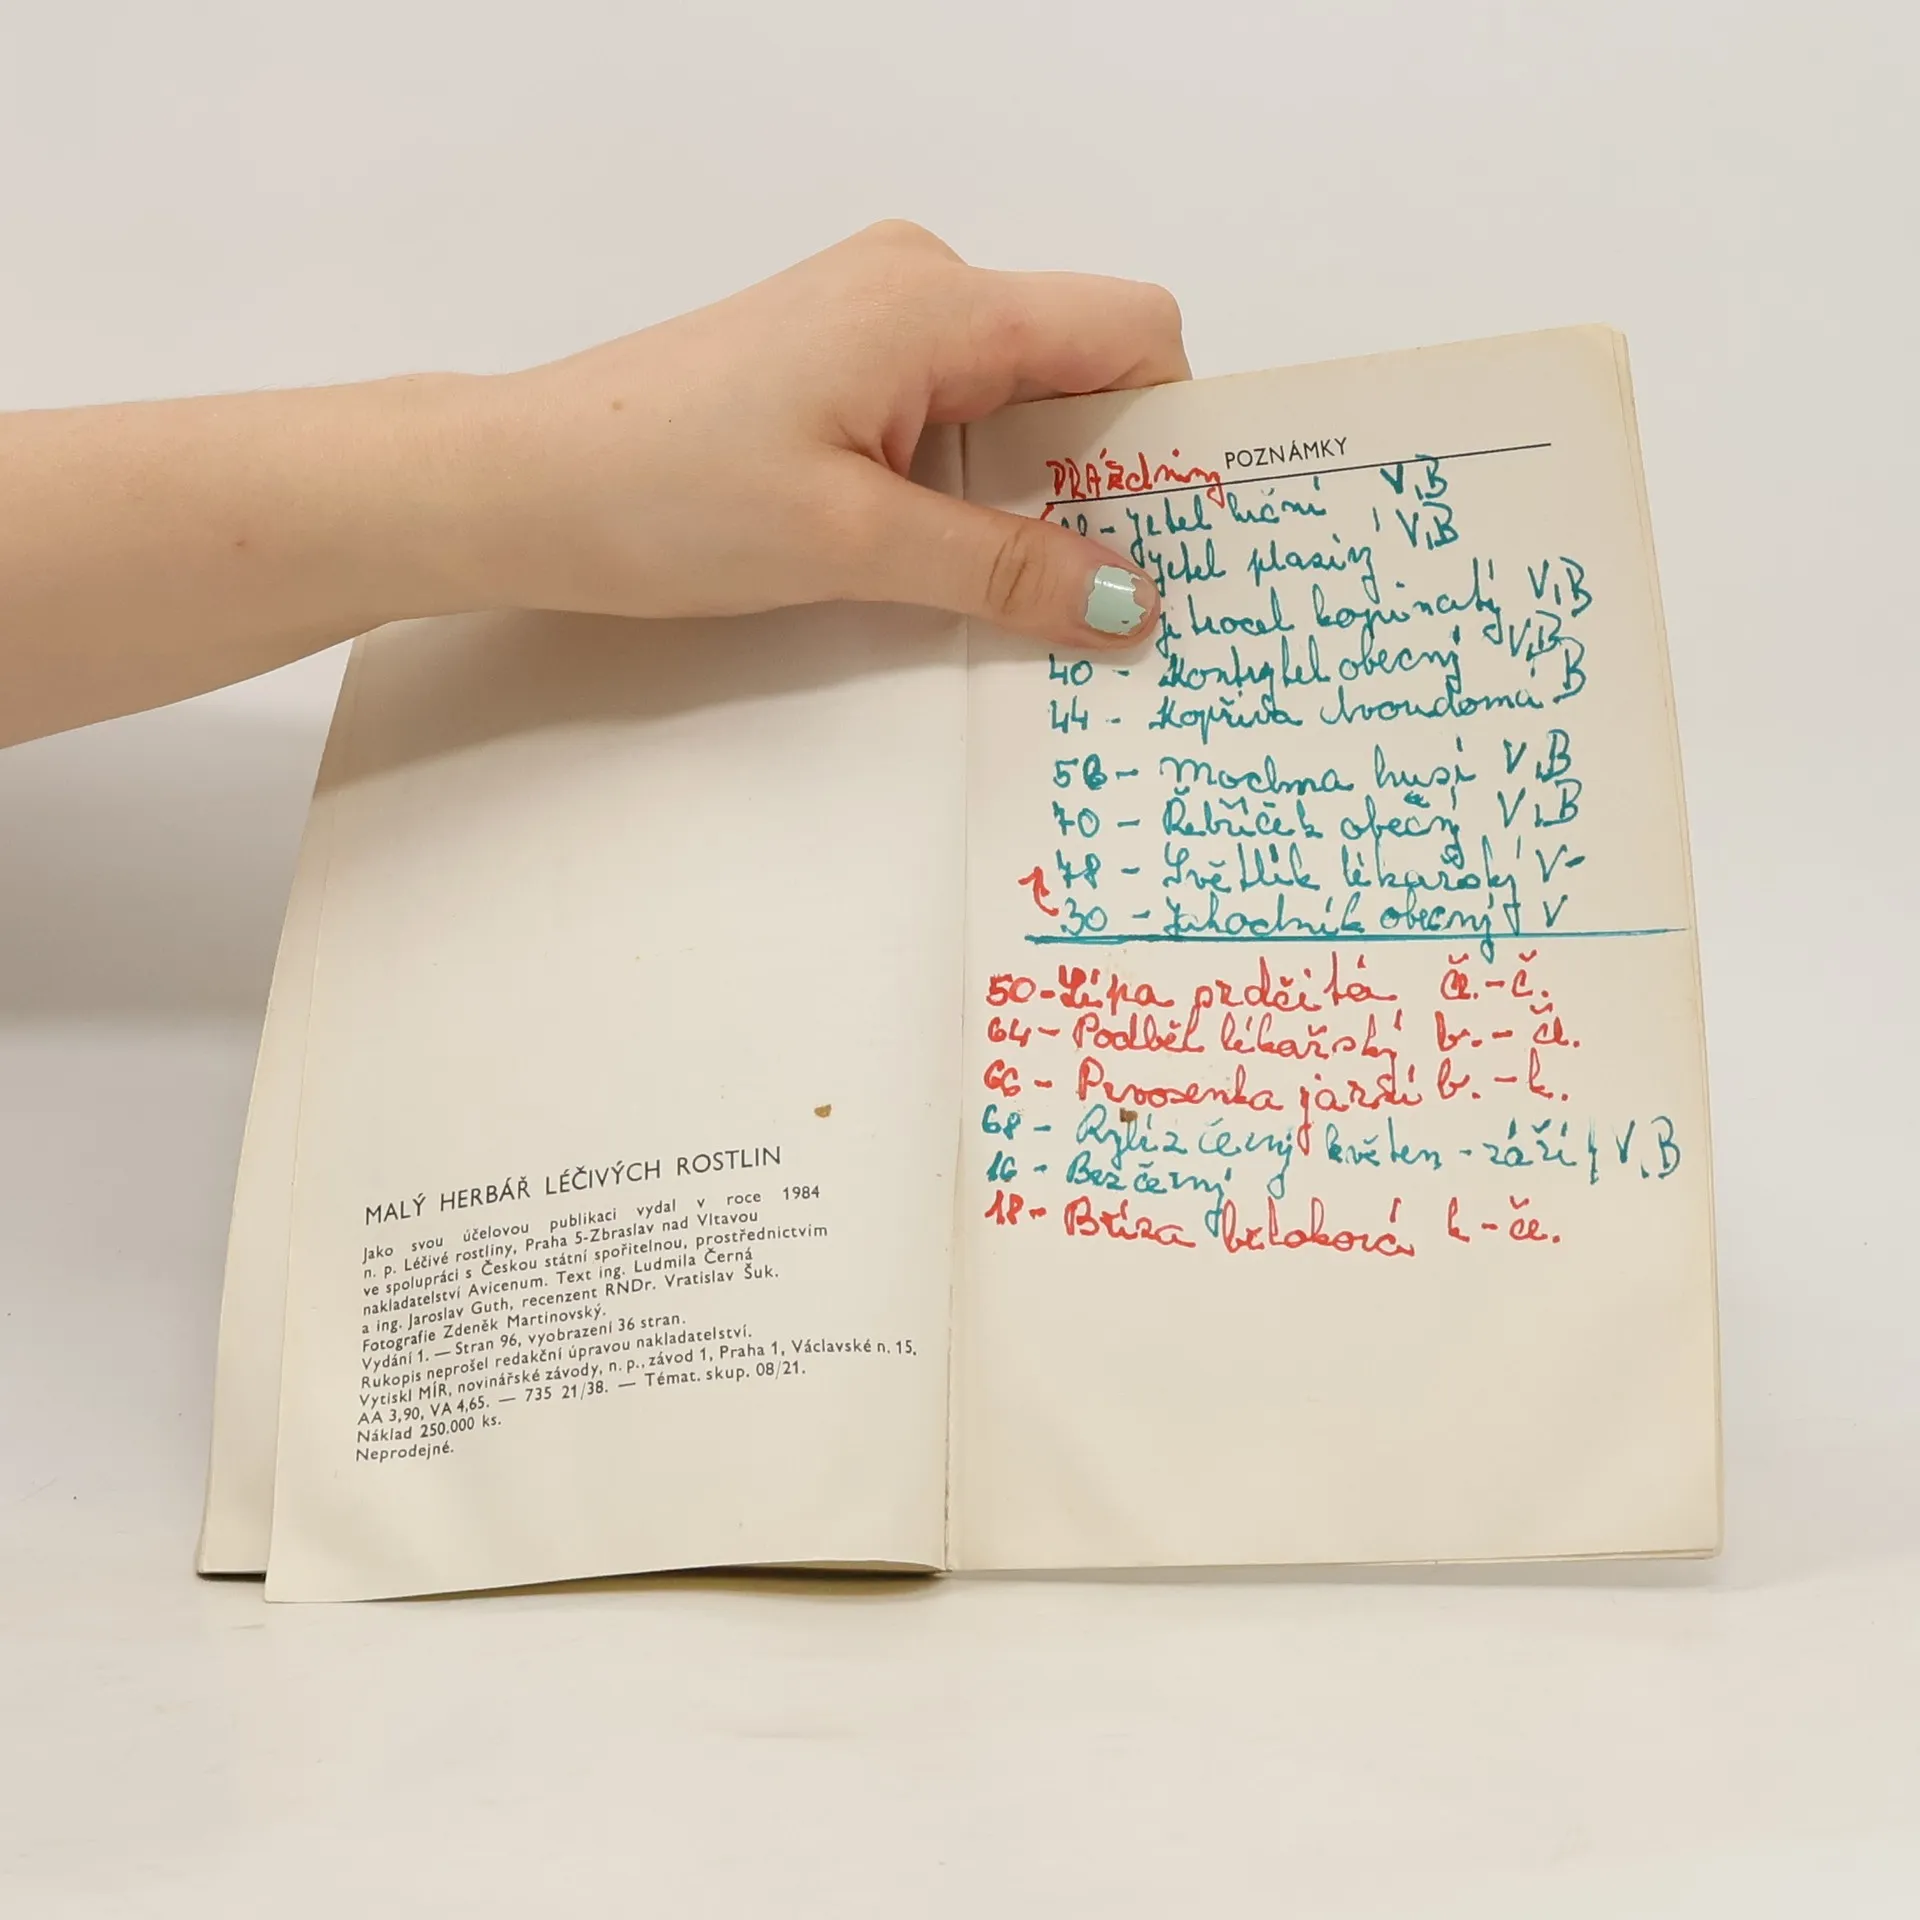 MALÝ HERBÁŘ LÉČIVÝCH ROSTLIN
Jako svou účelovou publikaci vydal v roce 1984
n. p. Léčivé rostliny, Praha 5-Zbraslav nad Vltavou
ve spolupráci s Českou státní spořitelnou, prostřednictvím
nakladatelství Avicenum. Text ing. Ludmila Černá
a ing. Jaroslav Guth, recenzent RNDr. Vratislav Šuk.
Fotografie Zdeněk Martinovský.
Vydání 1. — Stran 96, vyobrazení 36 stran.
Rukopis neprošel redakční úpravou nakladatelství.
Vytiskl MÍR, novinářské závody, n. p., závod 1, Praha 1, Václavské n. 15.
AA 3,90, VA 4,65. — 735 21/38. — Témat. skup. 08/21.
Náklad 250.000 ks.
Neprodejné.
POZNÁMKY
PRÁZdniny
- Jetel luční V,B
Jetel plazivý V,B
jitrocel kopinatý V,B
40 - Kontryhel obecný V,B
44 - Kopřiva dvoudomá B
56 - Mochna husí V,B
70 - Řebříček obecný V,B
78 - Světlík lékařský V-
30 - Jahodník obecný V
50 - Lípa srdčitá č.-č.
64 - Podběl lékařský b. - č.
66 - Prvosenka jarní b. - k.
68 - Rybíz černý květen - září V,B
16 - Bez černý
18 - Bříza bělokorá k - če.